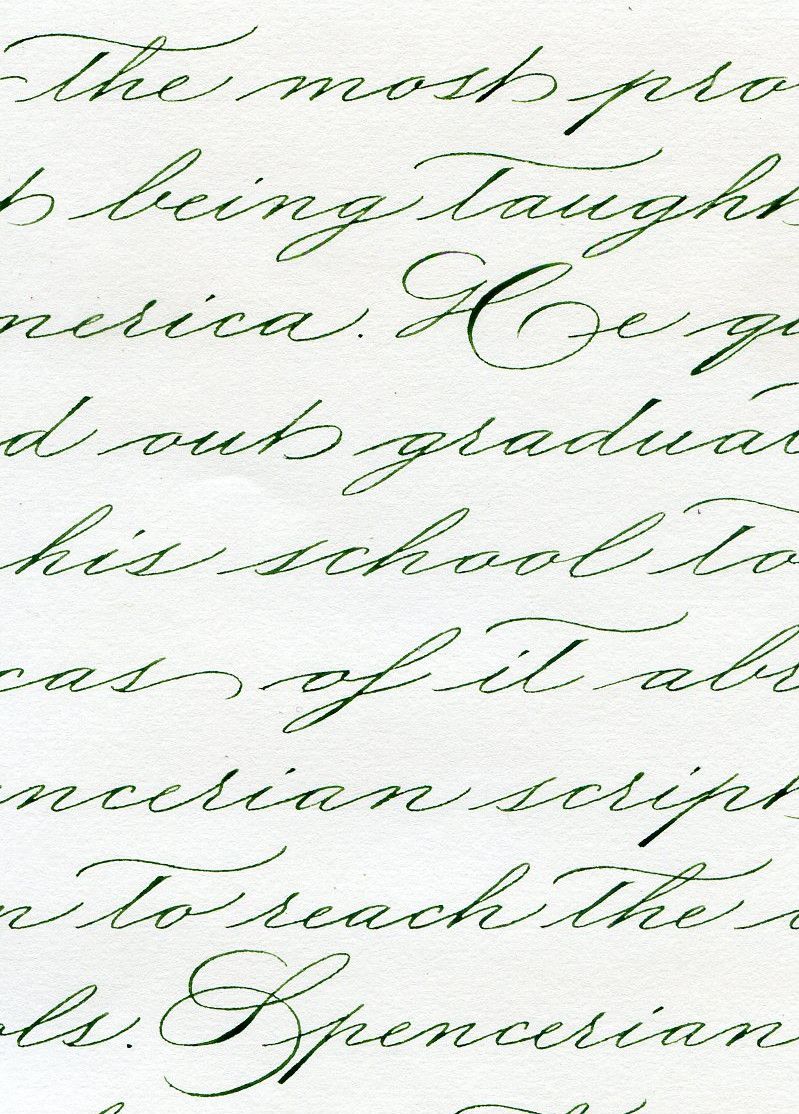 the most pro
t being taught
merica. He qu
d out graduat
his school to
cas of it abr
encerian script
n to reach the
ols. Spencerian